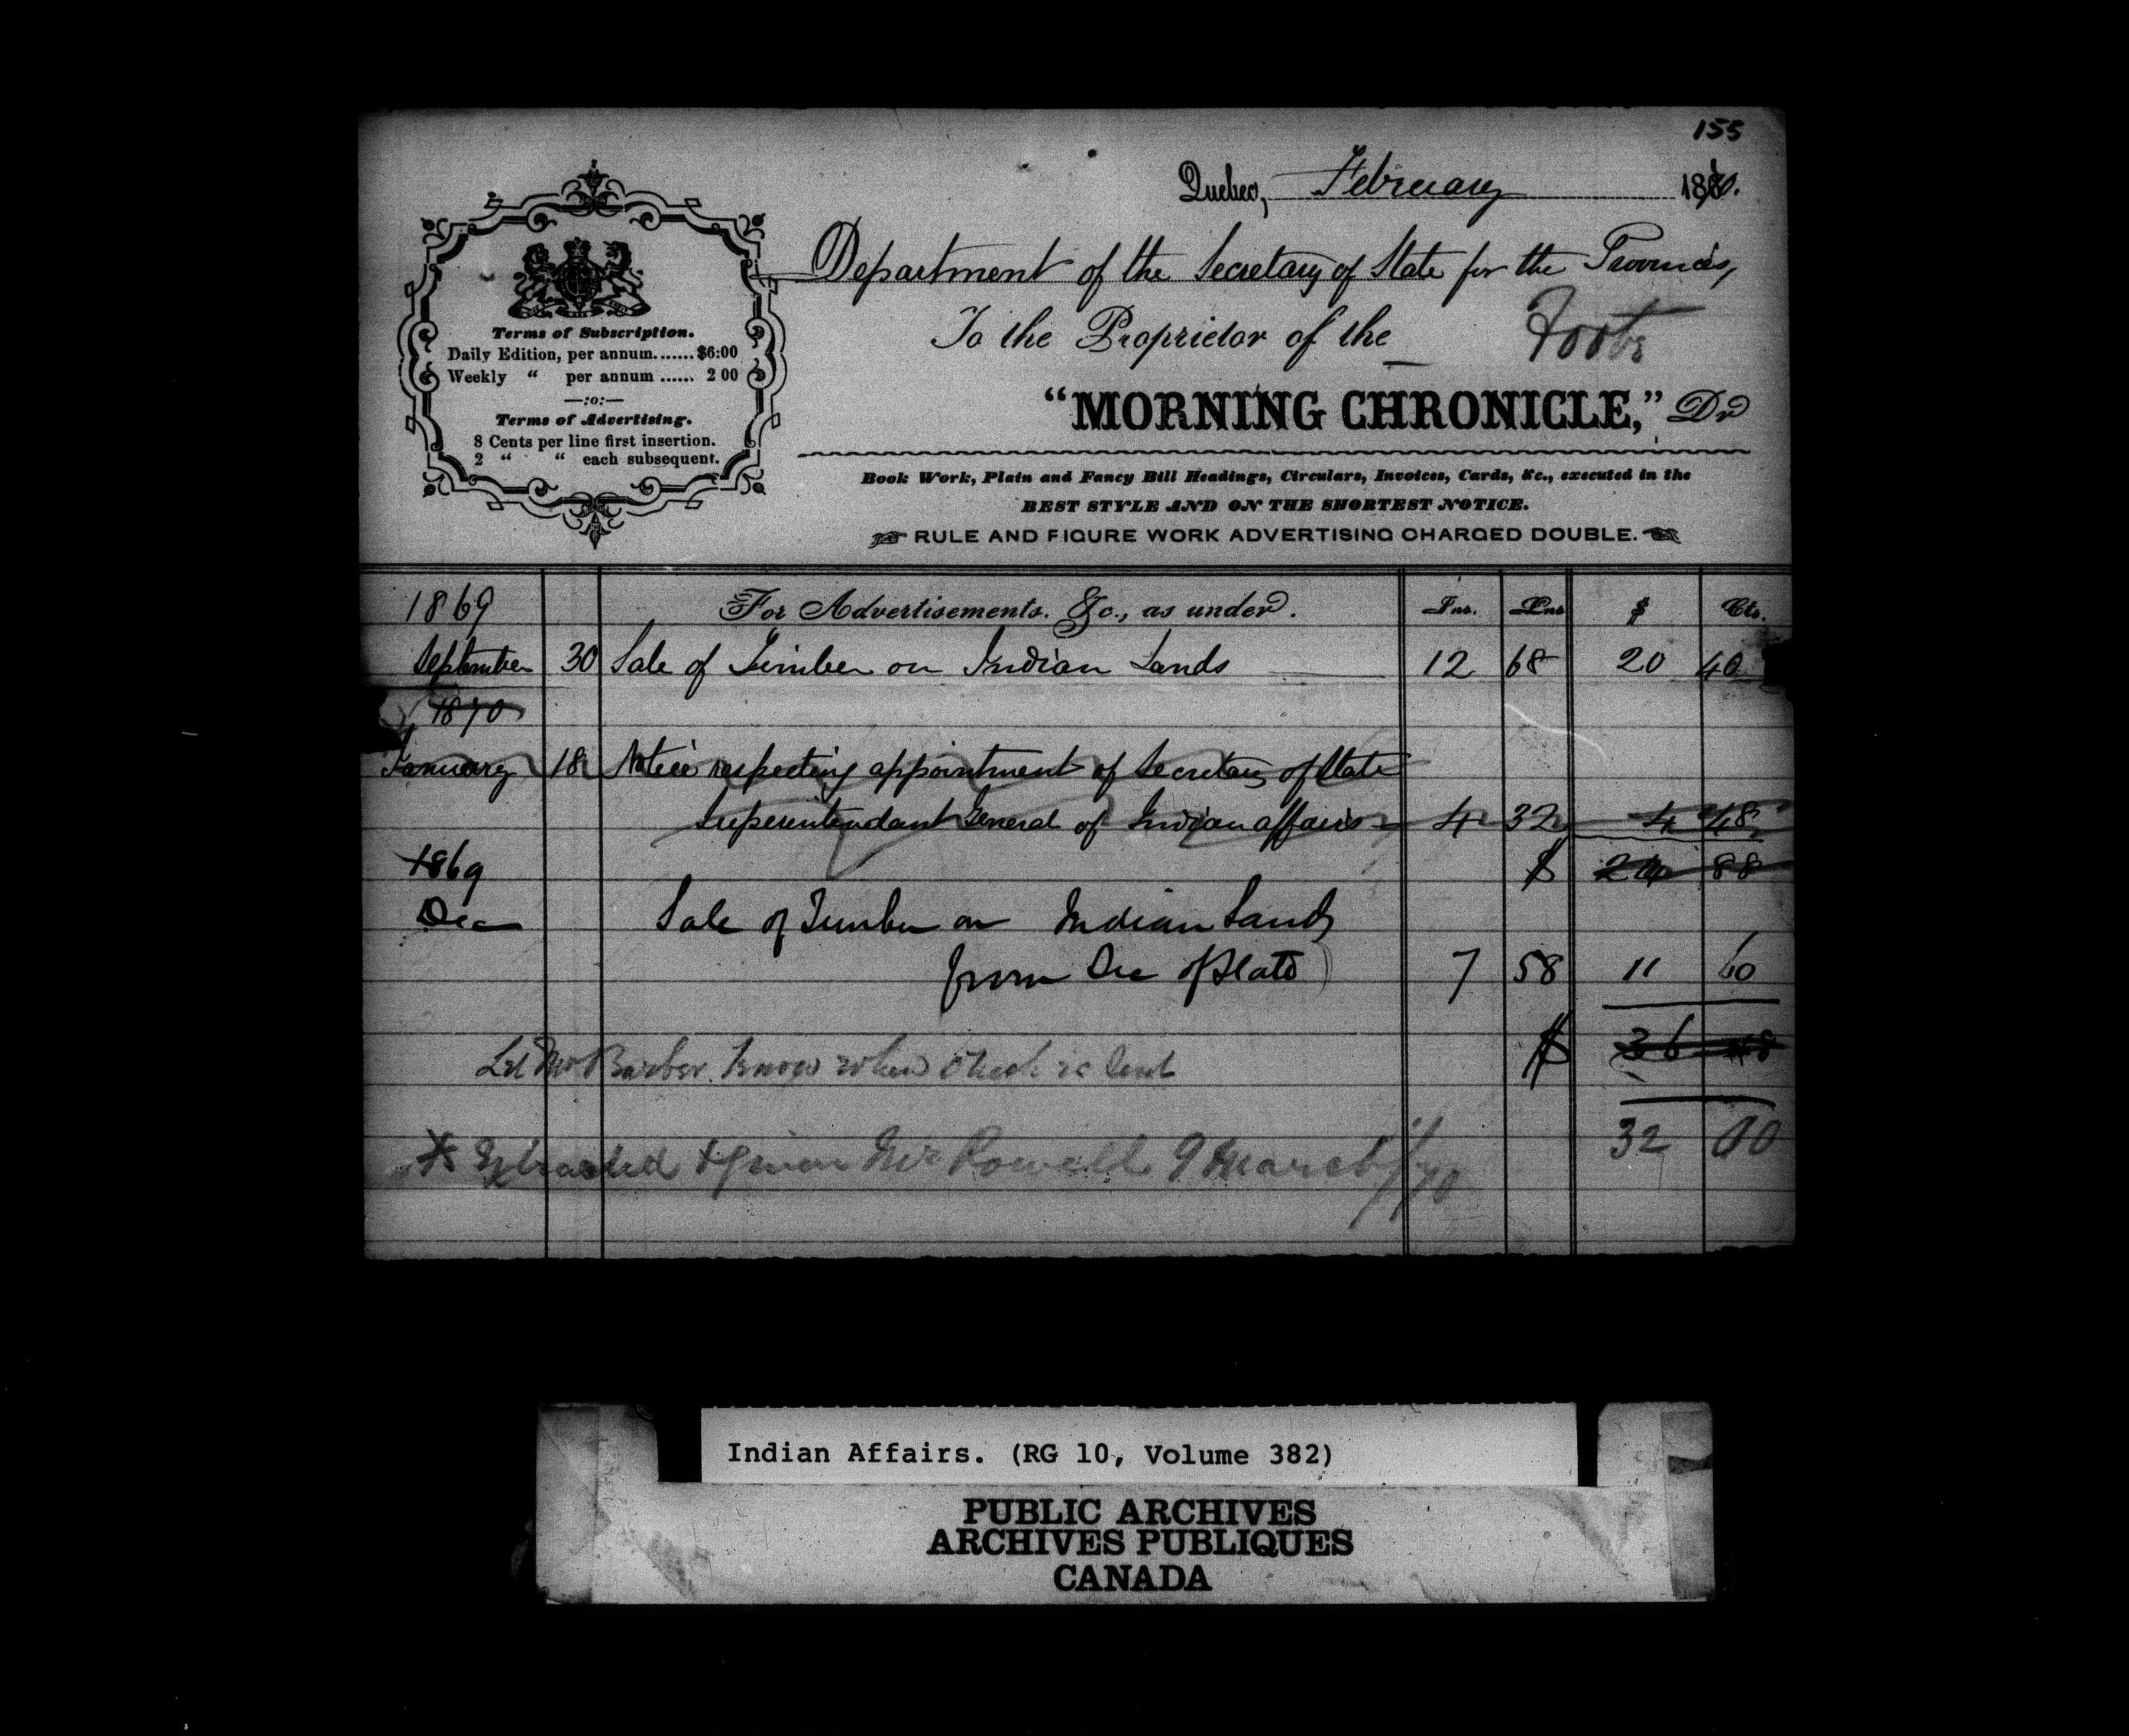 155
Quebec, February 1870.
Department of the Secretary of State for the Provinces,
To the Proprietor of the
"MORNING CHRONICLE," Dr
Terms of Subscription.
Daily Edition, per annum.......$6:00
Weekly " per annum ...... 2 00
—:o:—
Terms of Advertising.
8 Cents per line first insertion.
2 " " each subsequent.
Book Work, Plain and Fancy Bill Headings, Circulars, Invoices, Cards, &c., executed in the
BEST STYLE AND ON THE SHORTEST NOTICE.
RULE AND FIGURE WORK ADVERTISING CHARGED DOUBLE.
1869 For Advertisements. &c., as under. Ins. Lns $ Cts.
September 30 Sale of Timber on Indian Lands 12 68 20 40
1870
January 18 Notice respecting appointment of Secretary of State
Superintendant General of Indian affairs 4 32 4 48
1869 $ 24 88
Dec Sale of Timber on Indian Lands
from Sec of State 7 58 11 60
$ 36 48
Let Mr Barber know when Check is sent
32 00
Extracted & given Mr Rowell 9 March /70
Indian Affairs. (RG 10, Volume 382)
PUBLIC ARCHIVES
ARCHIVES PUBLIQUES
CANADA